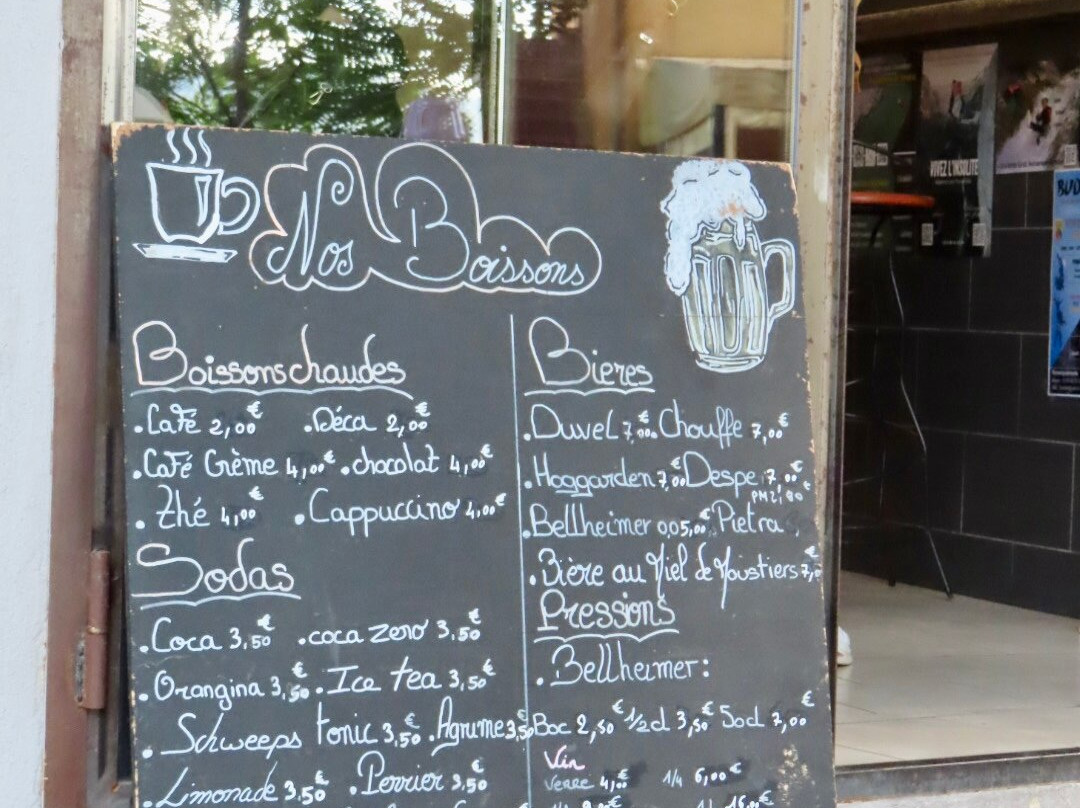 Nos Boissons
Boissons chaudes
.Café 2,00€ .Déca 2,00€
.Café Crème 4,00€ .chocolat 4,00€
.Thé 4,00€ .Cappuccino 4,00€
Sodas
.Coca 3,50€ .coca zero 3,50€
.Orangina 3,50€ .Ice tea 3,50€
.Schweeps tonic 3,50€ .Agrume 3,50
.Limonade 3,50€ .Perrier 3,50€
Bieres
.Duvel 7,00€ .Chouffe 7,00€
.Hoggarden 7,00€ Despe 7,00€
.Bellheimer Pietra
.Bière au Miel de Moustiers 7,0€
Pressions
.Bellheimer:
Boc 2,50€ 1/2d 3,50€ Sod 7,00€
Vin
Verre 4,00€ 1/4 6,00€
VIVEZ L'INSOLITE